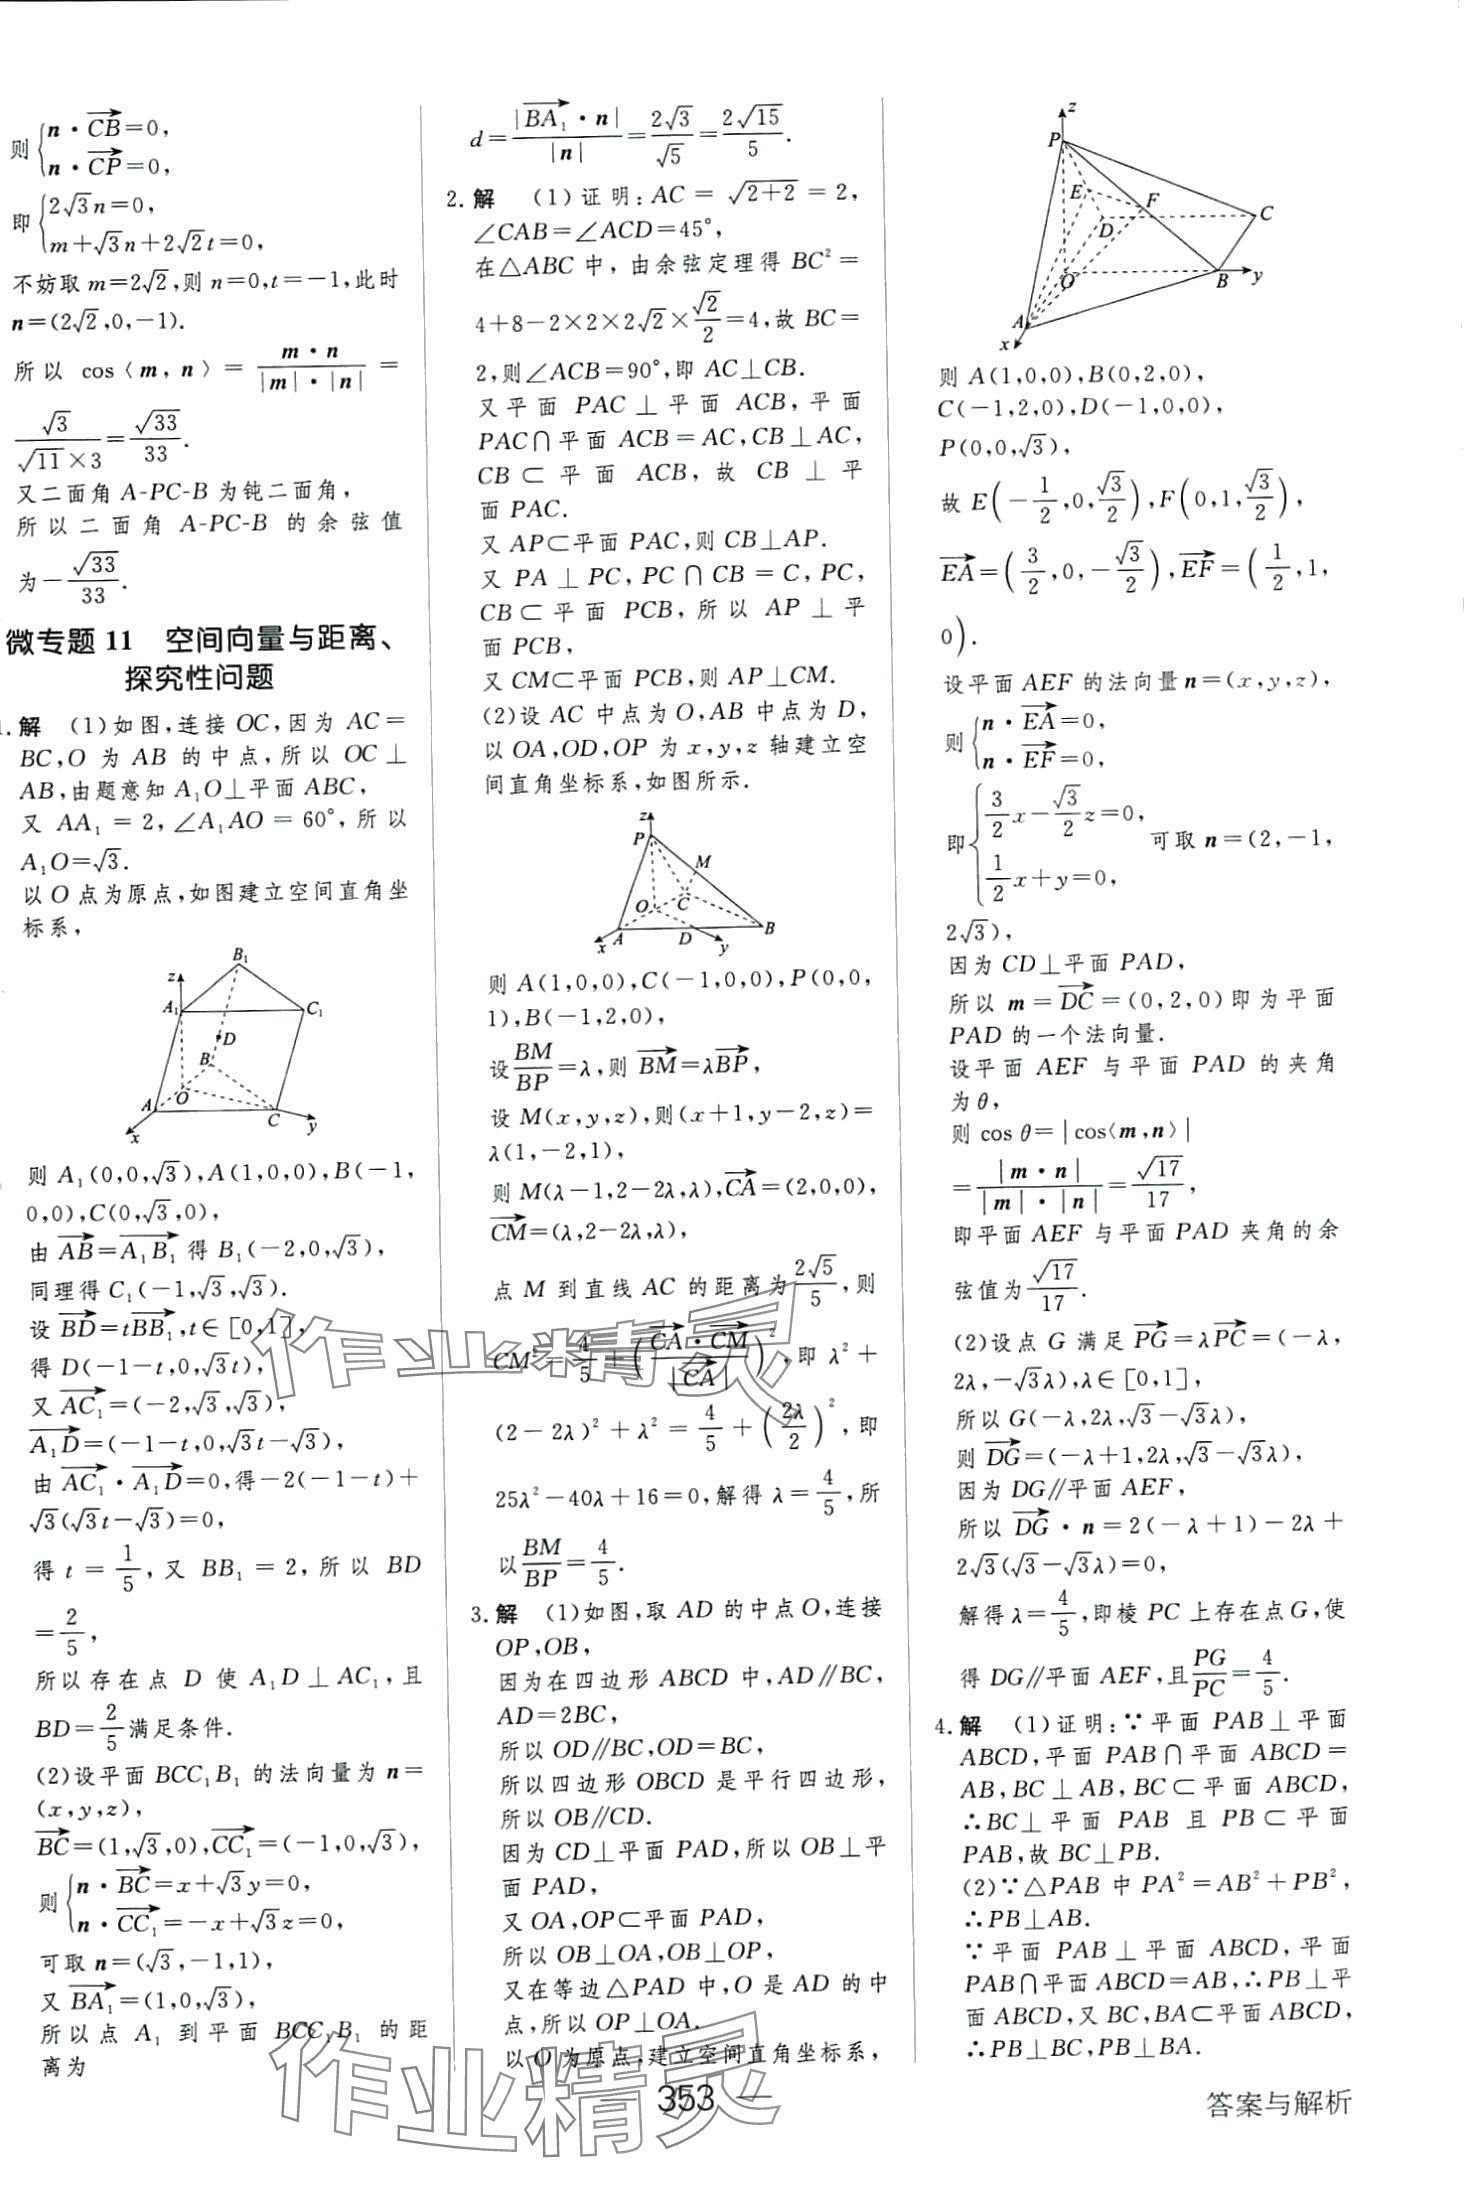 则{n·CB→=0,
n·CP→=0,
即{2√3n=0,
m+√3n+2√2t=0,
不妨取m=2√2,则n=0,t=-1,此时
n=(2√2,0,-1).
所以 cos〈m,n〉= m·n/|m|·|n| =
√3/(√11×3)=√33/33.
又二面角A-PC-B为钝二面角,
所以二面角A-PC-B的余弦值
为-√33/33.
微专题11 空间向量与距离、
探究性问题
1.解 (1)如图,连接OC,因为AC=
BC,O为AB的中点,所以OC⊥
AB,由题意知A₁O⊥平面ABC,
又AA₁=2,∠A₁AO=60°,所以
A₁O=√3.
以O点为原点,如图建立空间直角坐
标系,
z
B₁
A₁
C₁
D
B
A
O
C
x
y
则A₁(0,0,√3),A(1,0,0),B(-1,
0,0),C(0,√3,0),
由AB→=A₁B₁→得B₁(-2,0,√3),
同理得C₁(-1,√3,√3).
设BD→=tBB₁→,t∈[0,1],
得D(-1-t,0,√3t),
又AC₁→=(-2,√3,√3),
A₁D→=(-1-t,0,√3t-√3),
由AC₁→·A₁D→=0,得-2(-1-t)+
√3(√3t-√3)=0,
得t=1/5,又BB₁=2,所以BD
=2/5,
所以存在点D使A₁D⊥AC₁,且
BD=2/5满足条件.
(2)设平面BCC₁B₁的法向量为n=
(x,y,z),
BC→=(1,√3,0),CC₁→=(-1,0,√3),
则{n·BC→=x+√3y=0,
n·CC₁→=-x+√3z=0,
可取n=(√3,-1,1),
又BA₁→=(1,0,√3),
所以点A₁到平面BCC₁B₁的距
离为
d=|BA₁→·n|/|n|=2√3/√5=2√15/5.
2.解 (1)证明:AC=√(2+2)=2,
∠CAB=∠ACD=45°,
在△ABC中,由余弦定理得BC²=
4+8-2×2×2√2×√2/2=4,故BC=
2,则∠ACB=90°,即AC⊥CB.
又平面PAC⊥平面ACB,平面
PAC∩平面ACB=AC,CB⊥AC,
CB⊂平面ACB,故CB⊥平
面PAC.
又AP⊂平面PAC,则CB⊥AP.
又PA⊥PC,PC∩CB=C,PC,
CB⊂平面PCB,所以AP⊥平
面PCB,
又CM⊂平面PCB,则AP⊥CM.
(2)设AC中点为O,AB中点为D,
以OA,OD,OP为x,y,z轴建立空
间直角坐标系,如图所示.
z
P
M
O
C
A
D
B
x
y
则A(1,0,0),C(-1,0,0),P(0,0,
1),B(-1,2,0),
设BM/BP=λ,则BM→=λBP→,
设M(x,y,z),则(x+1,y-2,z)=
λ(1,-2,1),
则M(λ-1,2-2λ,λ),CA→=(2,0,0),
CM→=(λ,2-2λ,λ),
点M到直线AC的距离为2√5/5,则
CM²=4/5+(CA→·CM→/|CA→|)²,即λ²+
(2-2λ)²+λ²=4/5+(2λ/2)²,即
25λ²-40λ+16=0,解得λ=4/5,所
以BM/BP=4/5.
3.解 (1)如图,取AD的中点O,连接
OP,OB,
因为在四边形ABCD中,AD∥BC,
AD=2BC,
所以OD∥BC,OD=BC,
所以四边形OBCD是平行四边形,
所以OB∥CD.
因为CD⊥平面PAD,所以OB⊥平
面PAD,
又OA,OP⊂平面PAD,
所以OB⊥OA,OB⊥OP,
又在等边△PAD中,O是AD的中
点,所以OP⊥OA.
以O为原点,建立空间直角坐标系,
z
P
E
F
D
C
O
B
y
A
x
则A(1,0,0),B(0,2,0),
C(-1,2,0),D(-1,0,0),
P(0,0,√3),
故E(-1/2,0,√3/2),F(0,1,√3/2),
EA→=(3/2,0,-√3/2),EF→=(1/2,1,
0).
设平面AEF的法向量n=(x,y,z),
则{n·EA→=0,
n·EF→=0,
即{3/2x-√3/2z=0,
1/2x+y=0,
可取n=(2,-1,
2√3),
因为CD⊥平面PAD,
所以m=DC→=(0,2,0)即为平面
PAD的一个法向量.
设平面AEF与平面PAD的夹角
为θ,
则cos θ=|cos〈m,n〉|
=|m·n|/|m|·|n|=√17/17,
即平面AEF与平面PAD夹角的余
弦值为√17/17.
(2)设点G满足PG→=λPC→=(-λ,
2λ,-√3λ),λ∈[0,1],
所以G(-λ,2λ,√3-√3λ),
则DG→=(-λ+1,2λ,√3-√3λ),
因为DG∥平面AEF,
所以DG→·n=2(-λ+1)-2λ+
2√3(√3-√3λ)=0,
解得λ=4/5,即棱PC上存在点G,使
得DG∥平面AEF,且PG/PC=4/5.
4.解 (1)证明:∵平面PAB⊥平面
ABCD,平面PAB∩平面ABCD=
AB,BC⊥AB,BC⊂平面ABCD,
∴BC⊥平面PAB且PB⊂平面
PAB,故BC⊥PB.
(2)∵△PAB中PA²=AB²+PB²,
∴PB⊥AB.
∵平面PAB⊥平面ABCD,平面
PAB∩平面ABCD=AB,∴PB⊥平
面ABCD,又BC,BA⊂平面ABCD,
∴PB⊥BC,PB⊥BA.
作业精灵
作业精灵
353
答案与解析